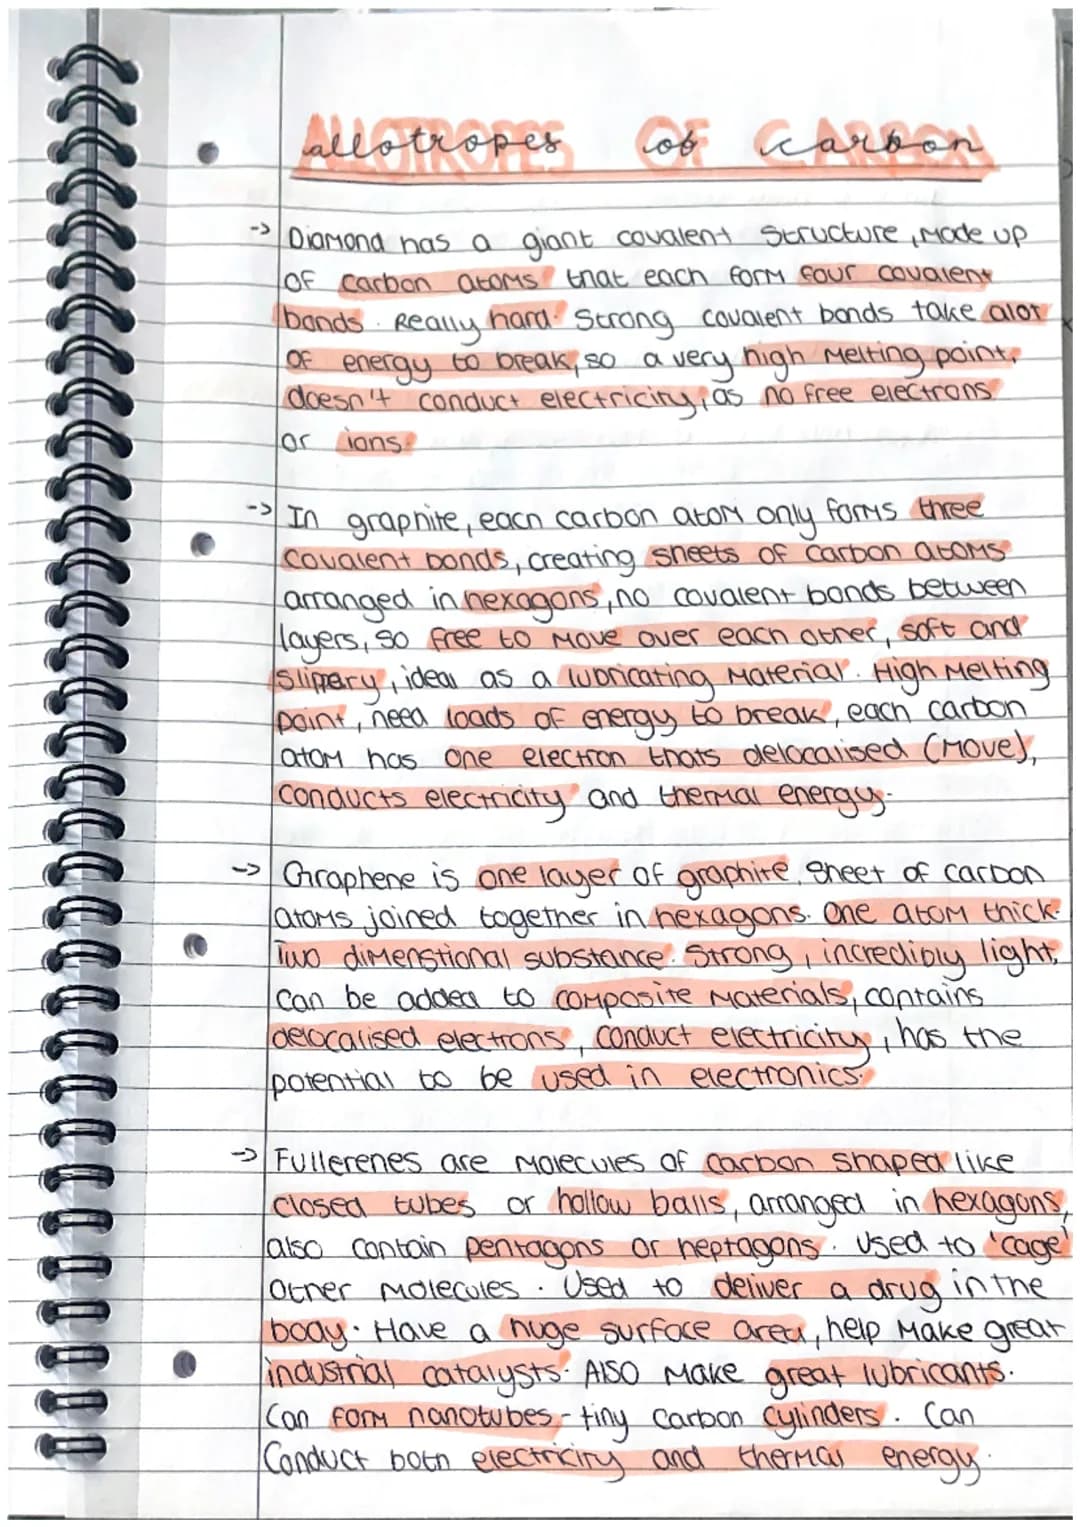 ALLOTROPES OF CARBON
allotropes of carbon
-> Diamond has a giant covalent structure, made up
of carbon atoms that each form four covalent
bonds. Really hard. Strong covalent bonds take alot
of energy to break, so a very high melting point,
doesn't conduct electricity, as no free electrons
or ions.
-> In graphite, each carbon atom only forms three
covalent bonds, creating sheets of carbon atoms
arranged in hexagons, no covalent bonds between
layers, so free to move over each other, soft and
slippery, ideal as a lubricating material. High melting
point, need loads of energy to break, each carbon
atom has one electron thats delocalised (move),
conducts electricity and thermal energy.
-> Graphene is one layer of graphite. Sheet of carbon
atoms joined together in hexagons. One atom thick.
Two dimenstional substance. Strong, incredibly light,
can be added to composite materials, contains
delocalised electrons, conduct electricity, has the
potential to be used in electronics.
-> Fullerenes are molecules of carbon shaped like
closed tubes or hollow balls, arranged in hexagons,
also contain pentagons or heptagons. Used to 'cage'
other molecules. Used to deliver a drug in the
body. Have a huge surface area, help make great
industrial catalysts. Also make great lubricants.
Can form nanotubes - tiny carbon cylinders. Can
conduct both electricity and thermal energy.